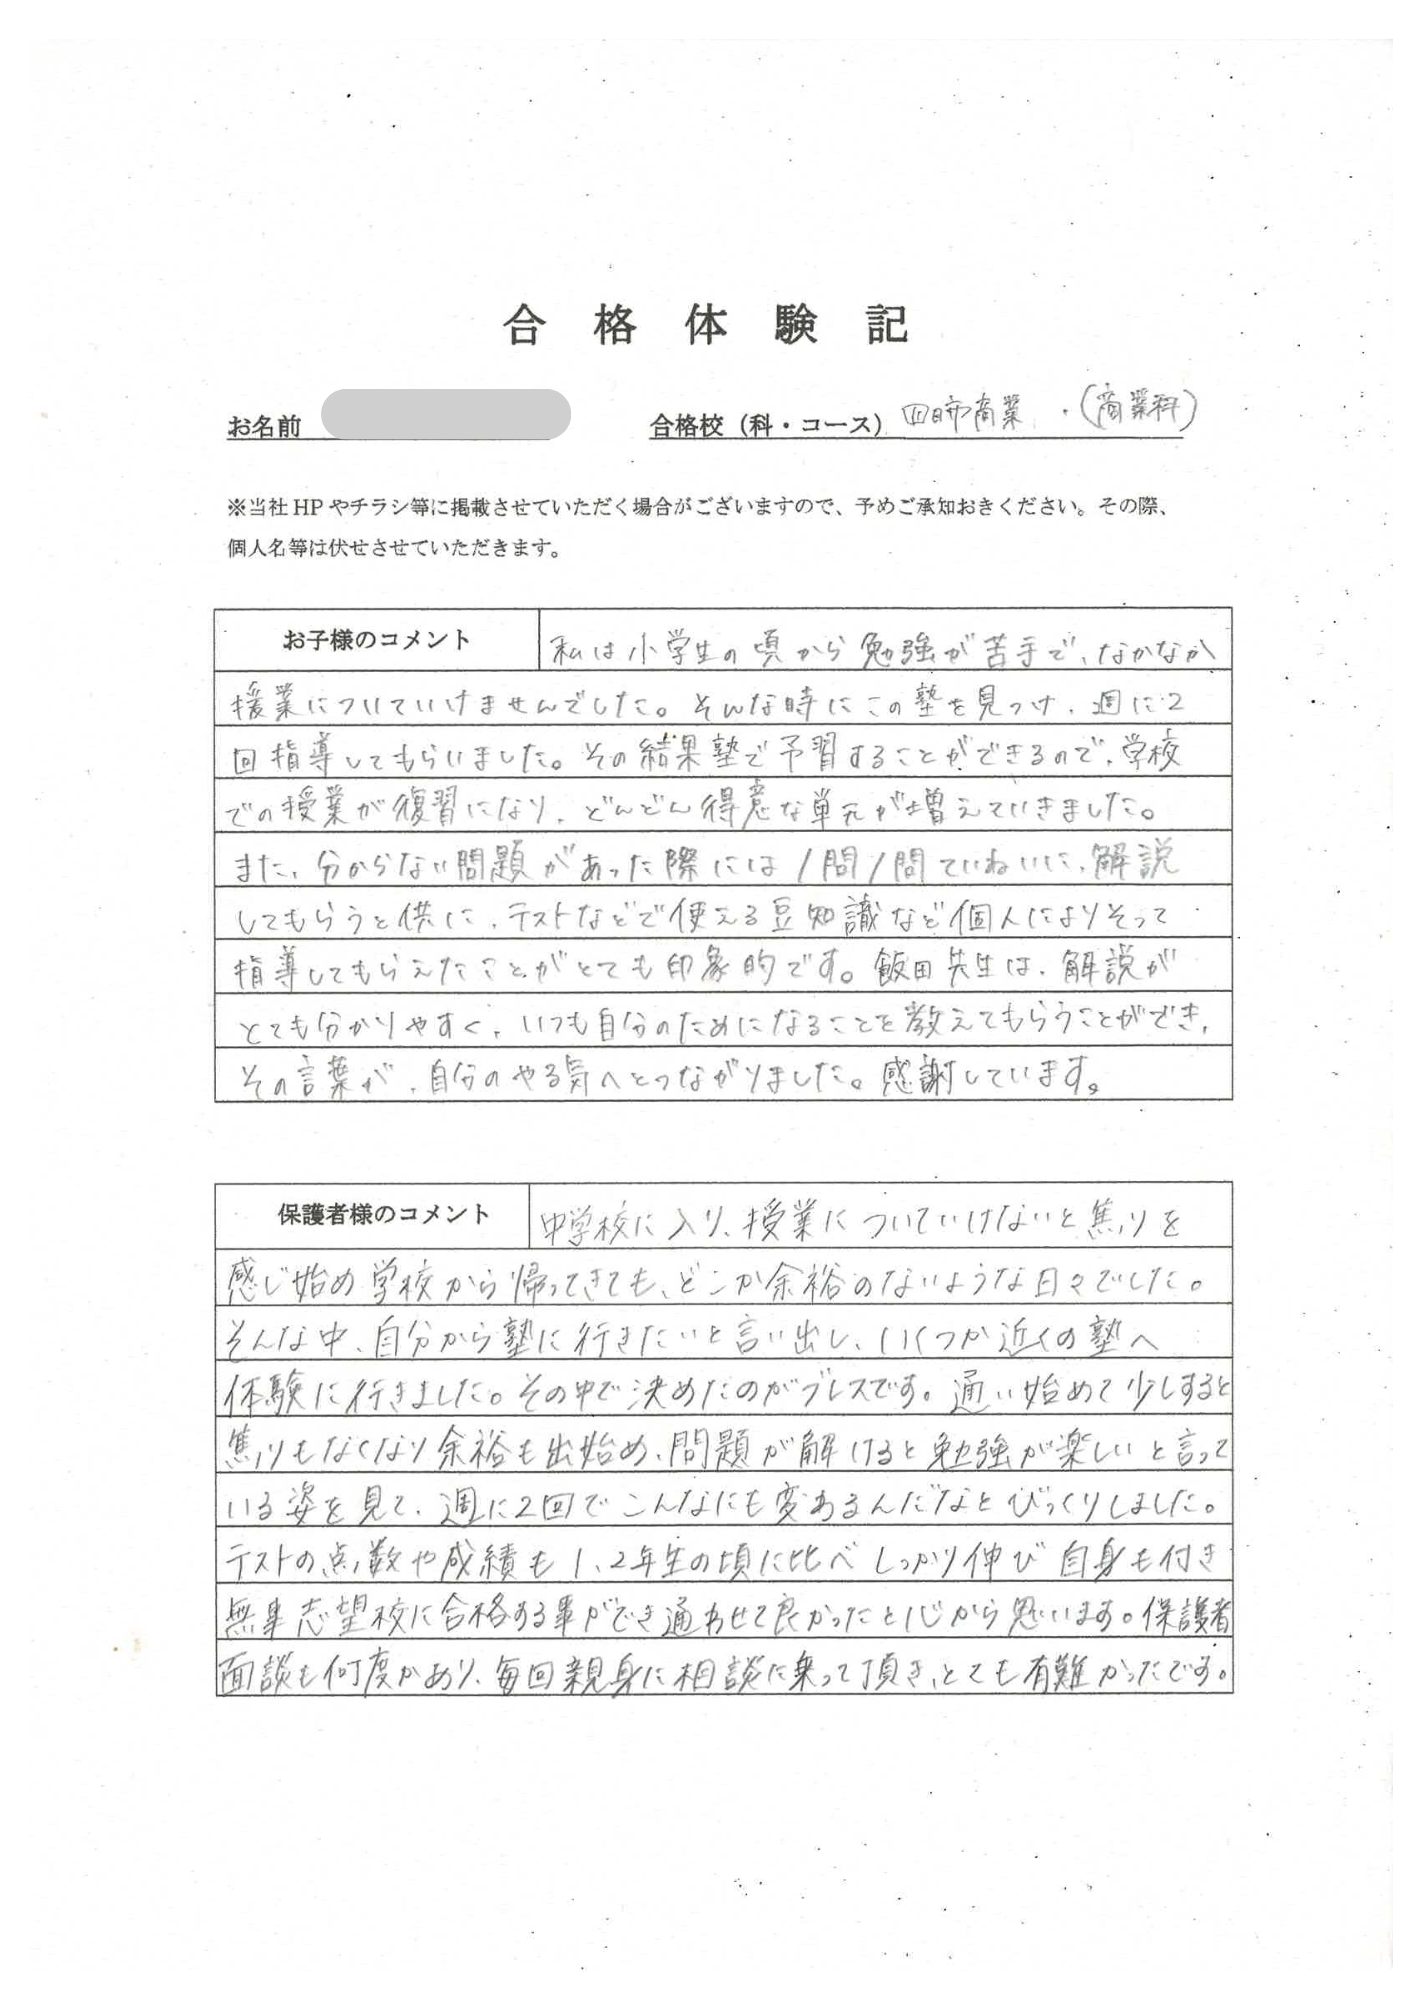 合格体験記
お名前
合格校（科・コース） 四日市商業 ・（商業科）
※当社HPやチラシ等に掲載させていただく場合がございますので、予めご承知おきください。その際、
個人名等は伏せさせていただきます。
お子様のコメント 私は小学生の頃から勉強が苦手で、なかなか
授業についていけませんでした。そんな時にこの塾を見つけ、週に2
回指導してもらいました。その結果塾で予習することができるので、学校
での授業が復習になり、どんどん得意な単元が増えていきました。
また、分からない問題があった際には1問1問ていねいに、解説
してもらうと供に、テストなどで使える豆知識など個人によりそって
指導してもらえたことがとても印象的です。飯田先生は、解説が
とても分かりやすく、いつも自分のためになることを教えてもらうことができ、
その言葉が、自分のやる気へとつながりました。感謝しています。
保護者様のコメント 中学校に入り、授業についていけないと焦りを
感じ始め学校から帰ってきても、どこか余裕のないような日々でした。
そんな中、自分から塾に行きたいと言い出し、いくつか近くの塾へ
体験に行きました。その中で決めたのがブレスです。通い始めて少しすると
焦りもなくなり余裕も出始め、問題が解けると勉強が楽しいと言って
いる姿を見て、週に2回でこんなにも変わるんだなとびっくりしました。
テストの点数や成績も1、2年生の頃に比べしっかり伸び自身も付き
無事志望校に合格する事ができ通わせて良かったと心から思います。保護者
面談も何度かあり、毎回親身に相談に乗って頂き、とても有難かったです。